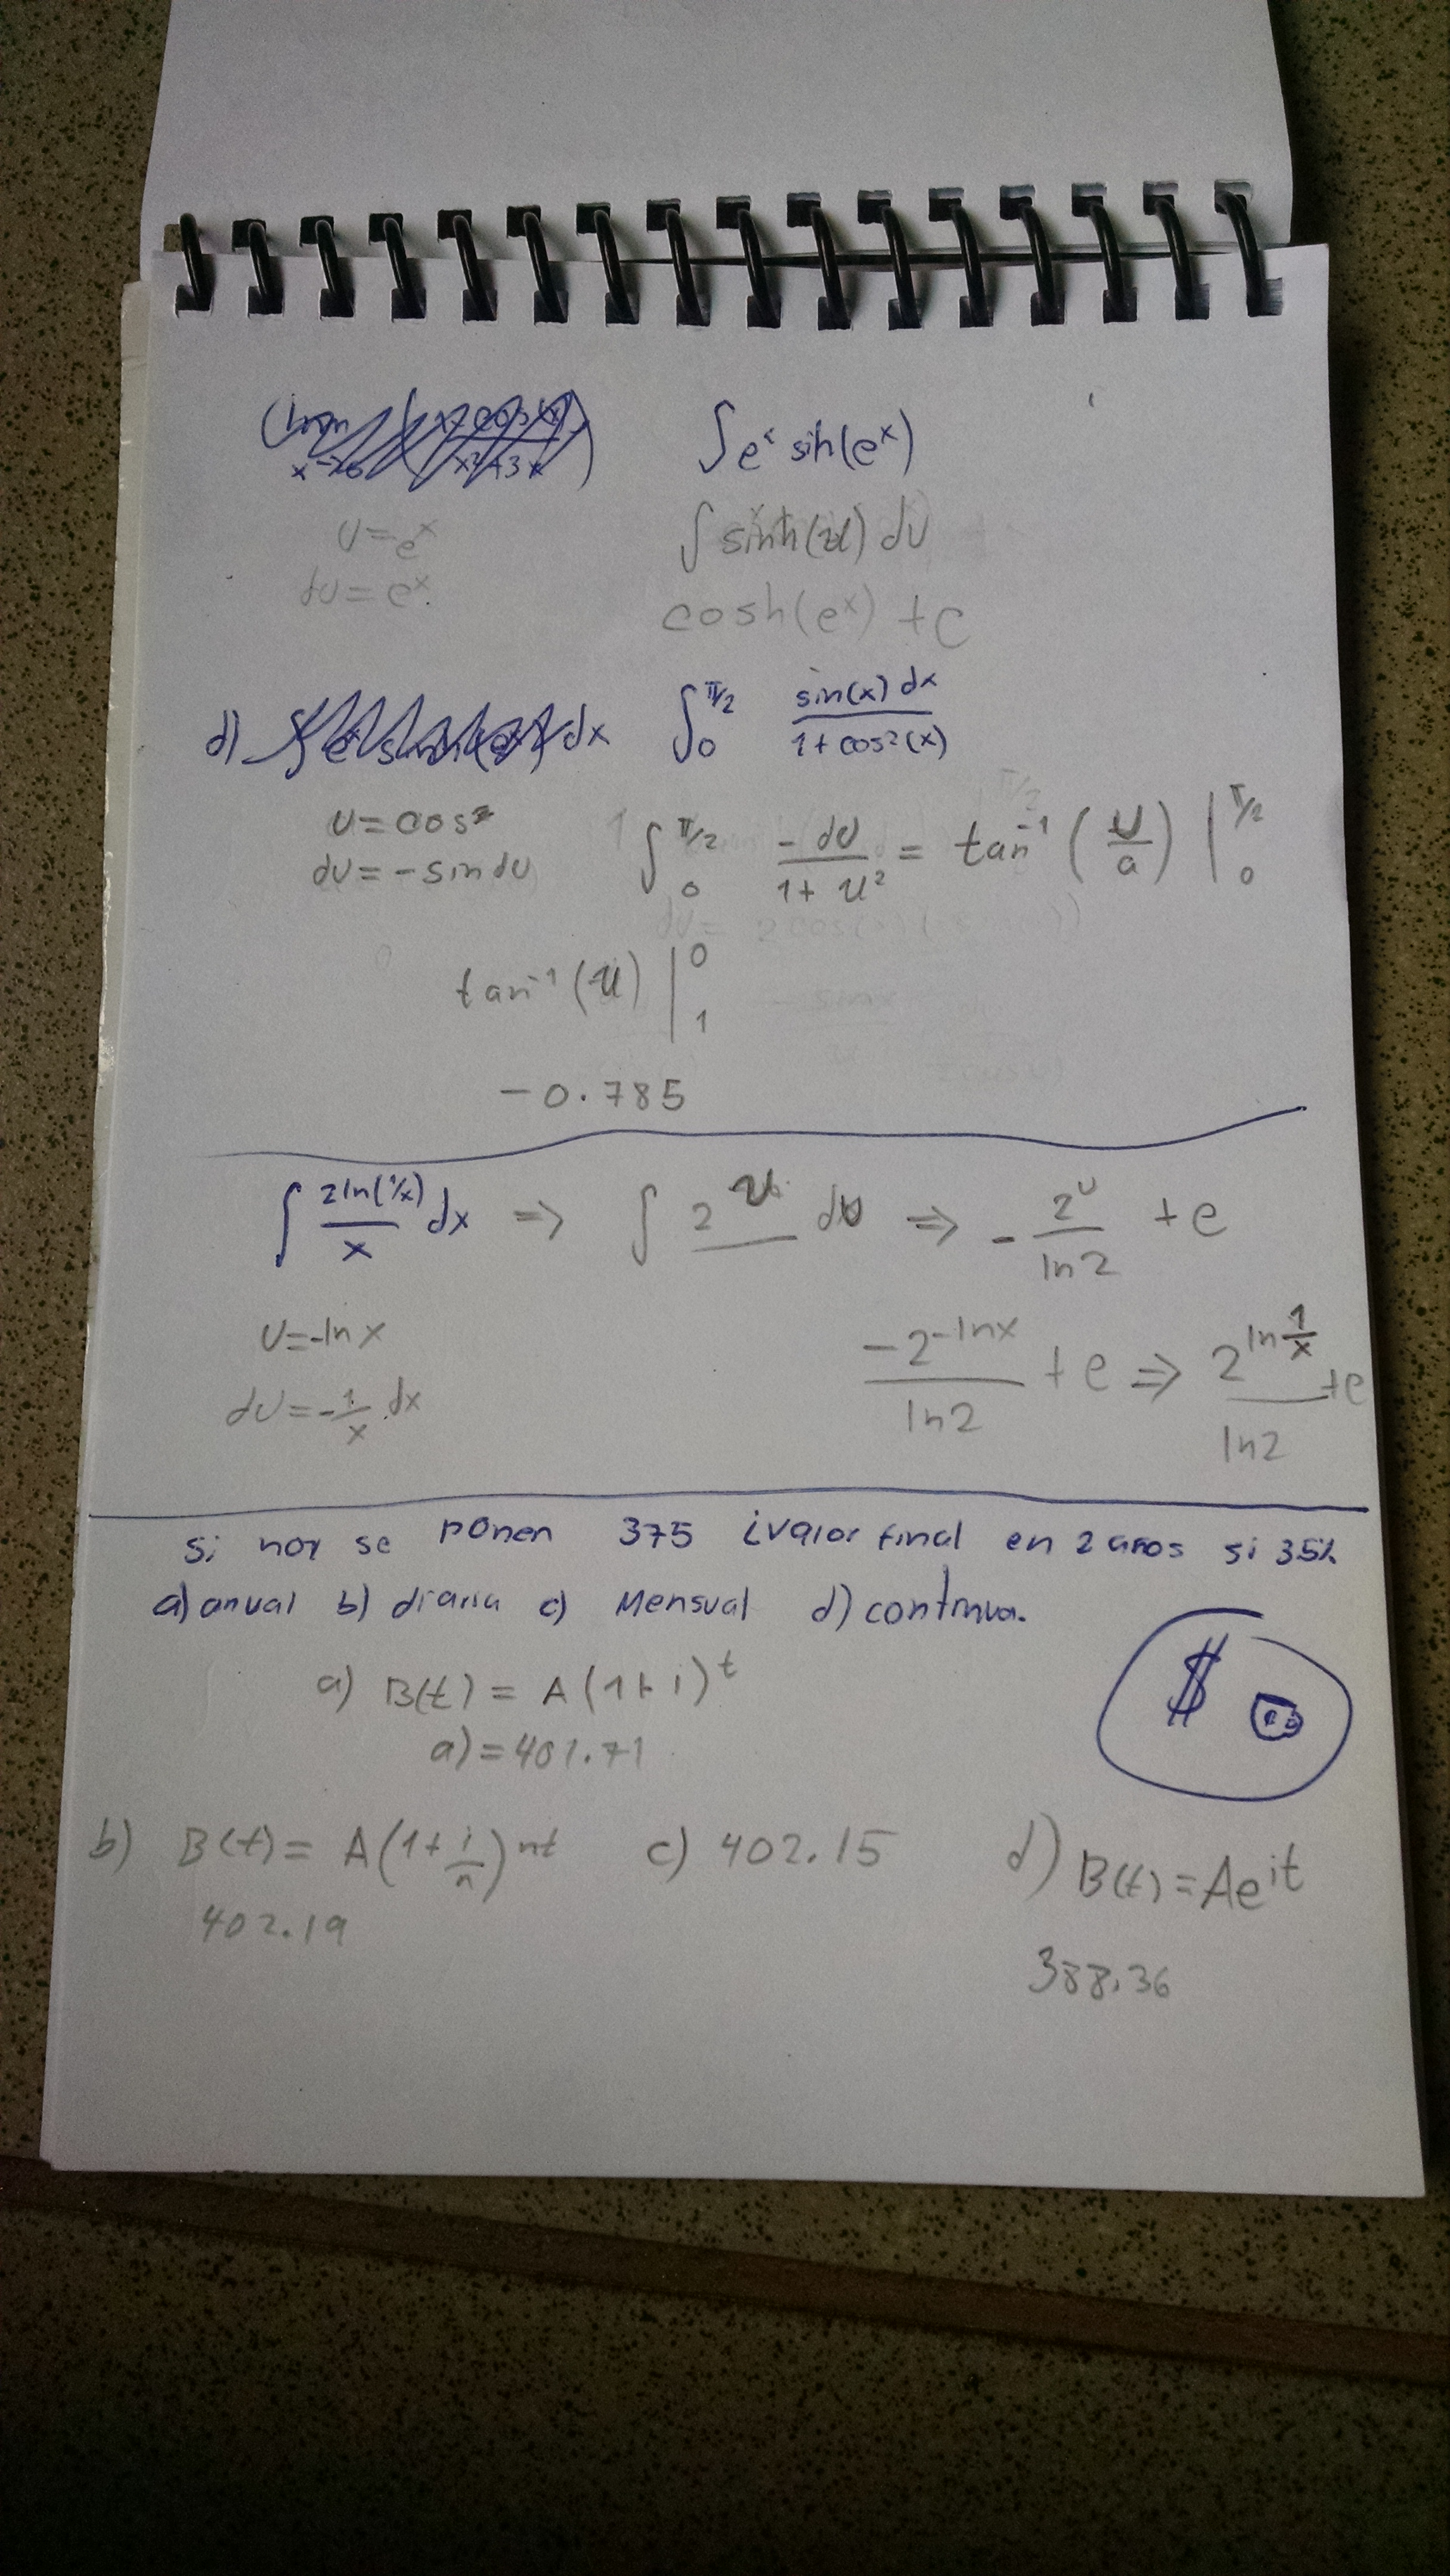 ∫e^x sinh(e^x)
u=e^x
∫ sinh(u) du
du = e^x
cosh(e^x) + c
d) dx ∫_0^{π/2} sin(x) dx / 1+cos²(x)
u = cos
du = -sin du
∫_0^{π/2} -du / 1+u² = tan^-1 (u/a) |_0^{π/2}
tan^-1 (u) |_1^0
-0.785
∫ 2ln(1/x) / x dx => ∫ 2^u du => - 2^u / ln2 + c
u=-lnx
du=-1/x dx
-2^{-lnx} / ln2 + c => 2^{ln 1/x} / ln2 + c
si hoy se ponen 375 ¿valor final en 2 años si 3.5%
a) anual b) diaria c) Mensual d) continua.
a) B(t) = A(1+i)^t
a) = 401.71
$
b) B(t) = A(1+i/n)^nt c) 402.15 d) B(t) = Ae^it
402.19
388.36